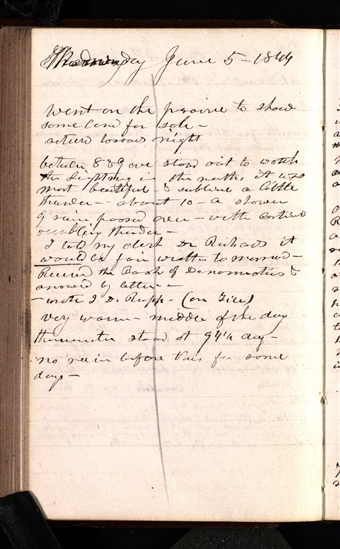 Wednesday June 5 - 1844
went on the prairie to show
some land for sale -
return toward night
between 8 & 9 we stood out to watch
the lightning in the north, it was
most beautiful & sublime a little
thunder - about 10 - a shower
of rain passed over - with
thunder -
I told my clerk Dr Richards it
would be fair weather to morrow -
Received the Book of Denominations &
answered by letter -
- wrote I. D. Rupp -
very warm - middle of the day
thermometer stood at 94 in day -
no rain before this for some
days -